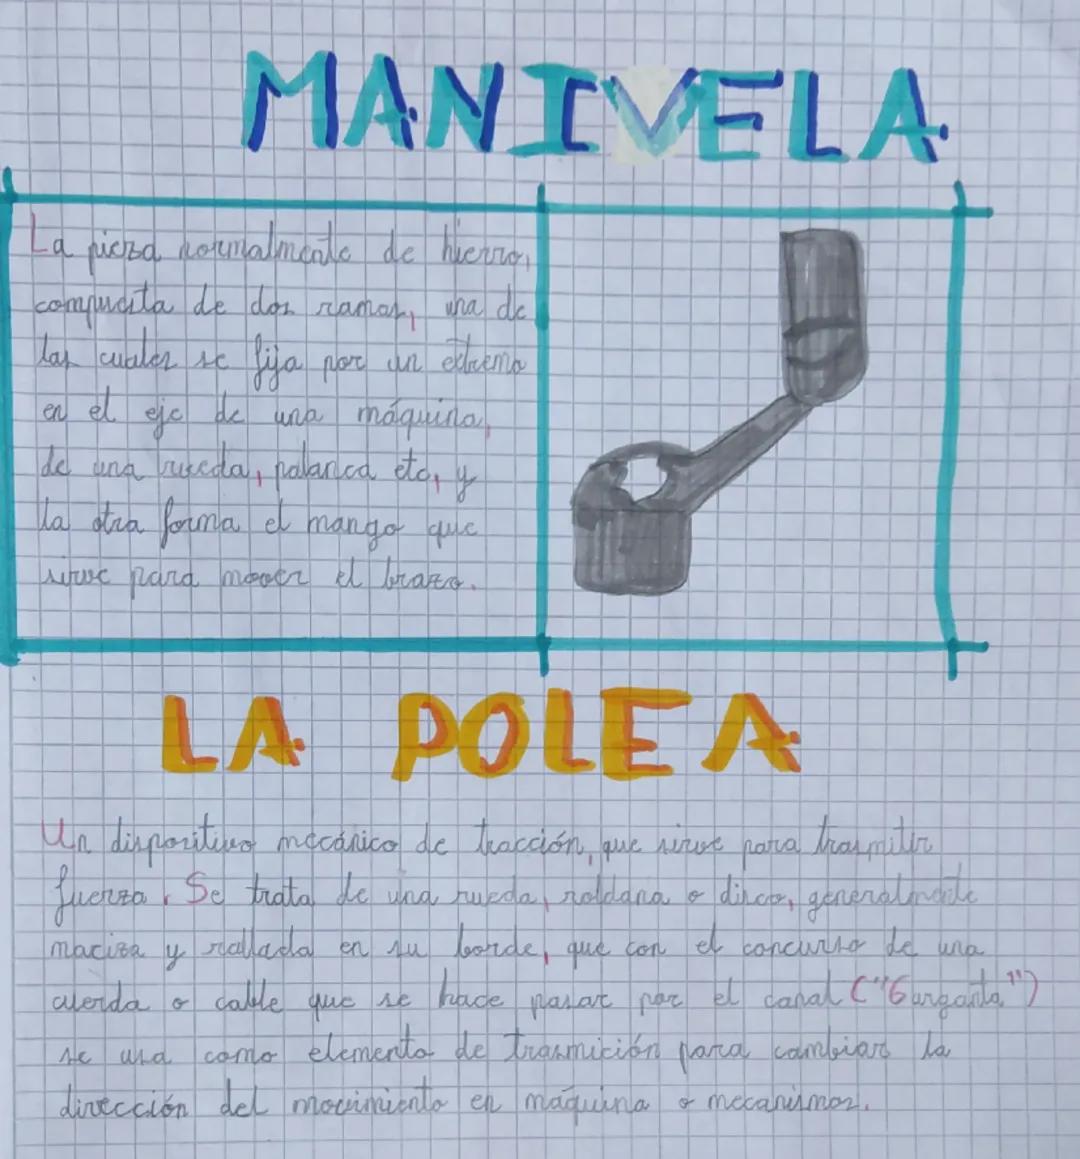 MANIVELA
La pieza normalmente de hierro,
compuesta de dos ramas, una de
las cuales se fija por un extremo
en el eje de una máquina,
de una rueda, palanca etc, y
la otra forma el mango que
sirve para mover el brazo.
LA POLEA
Un dispositivo mecánico de tracción, que sirve para trasmitir
fuerza. Se trata de una rueda, roldana o disco, generalmente
maciza y rallada en su borde, que con el concurso de una
cuerda o cable que se hace pasar por el canal ("Garganta")
se usa como elemento de trasmición para cambiar la
dirección del movimiento en máquina o mecanismos.